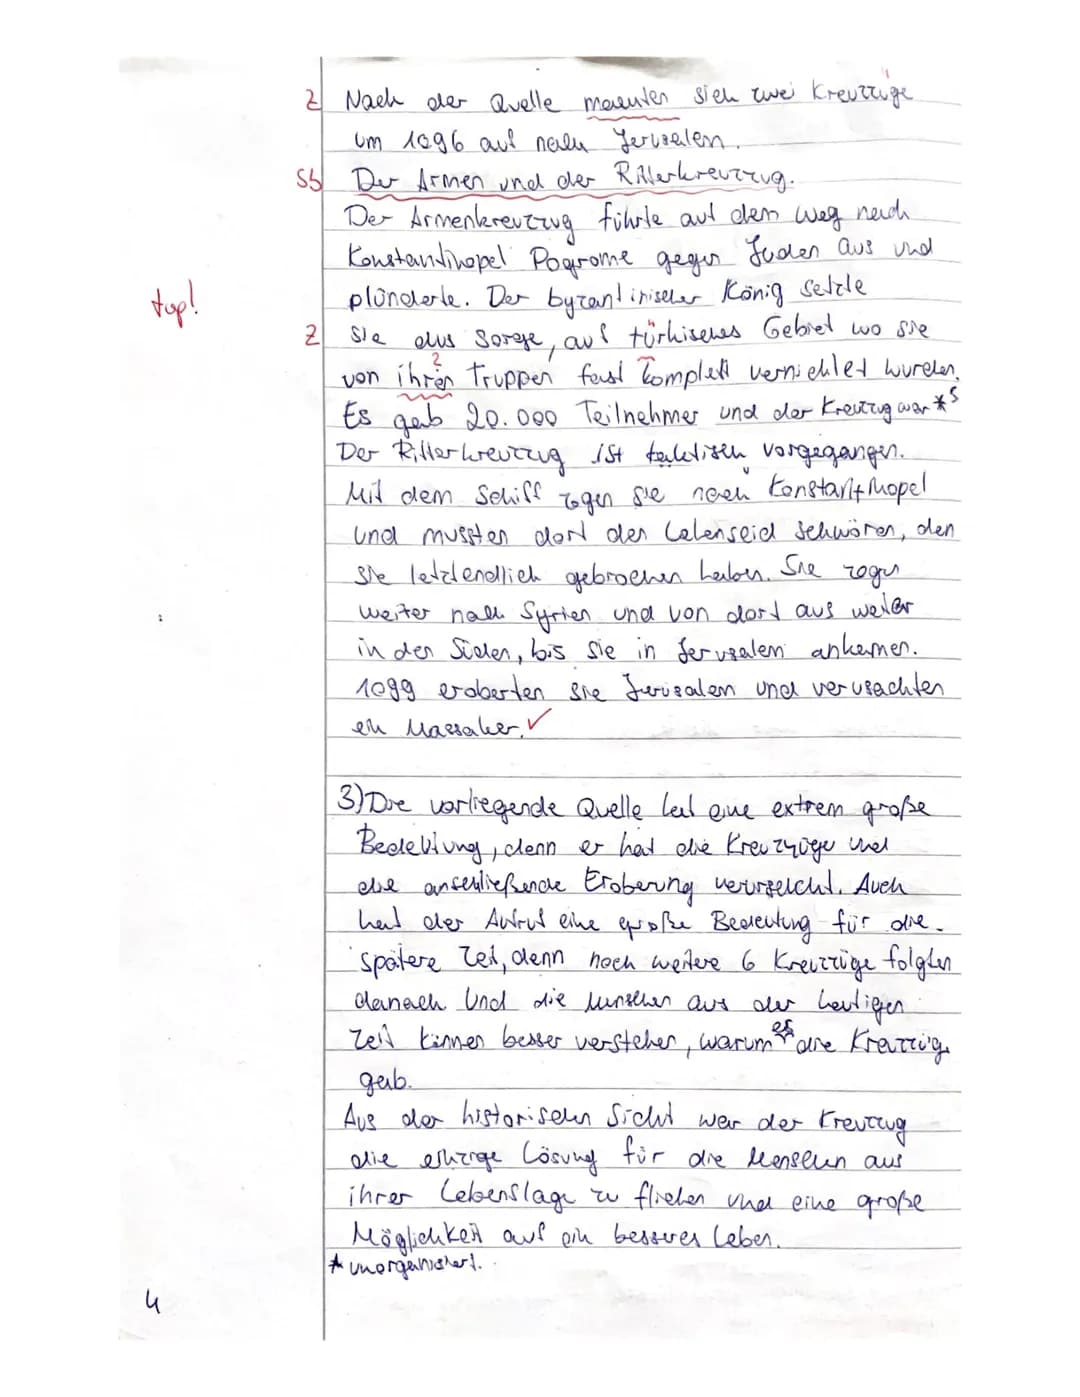 Z Nach der Quelle machten sich zwei Kreuzzüge
um 1096 auf nach Jerusalem.
Sb Der Armen und der Ritterkreuzzug.
Der Armenkreuzzug führte auf dem Weg nach
Konstantinopel Pogrome gegen Juden aus und
top! plünderte. Der byzantinischer König setzte
Z Sie aus Sorge, auf türkisches Gebiet wo sie
?
von ihren Truppen fast komplett vernichtet wurden.
Es gab 20.000 Teilnehmer und der Kreuzzug war *s
Der Ritterkreuzzug ist taktisch vorgegangen.
Mit dem Schiff zogen sie nach Konstantinopel
und mussten dort den Lehenseid schwören, den
sie letztendlich gebrochen haben. Sie zogen
weiter nach Syrien und von dort aus weiter
in den Süden, bis sie in Jerusalem ankamen.
1099 eroberten sie Jerusalem und verusachten
ein Massaker. ✓
3) Die vorliegende Quelle hat eine extrem große
Bedeutung, denn er hat die Kreuzzüge und
die anschließende Eroberung verursacht. Auch
hat der Aufruf eine große Bedeutung für die
spätere Zeit, denn noch weitere 6 Kreuzzüge folgten
danach Und die Menschen aus der heutigen
Zeit können besser verstehen, warum es die Kreuzzüge
gab.
Aus der historischen Sicht war der Kreuzzug
die einzige Lösung für die Menschen aus
ihrer Lebenslage zu fliehen und eine große
Möglichkeit auf ein besseres Leben.
* unorganisiert.
4